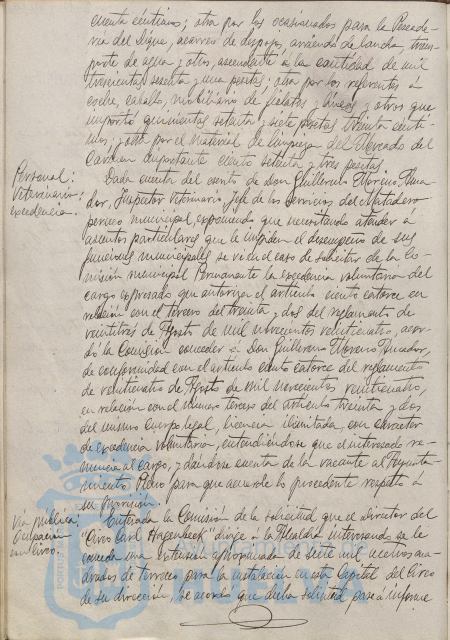 cuenta céntimos; otra por los ocasionados para la Pescade-
ría del Dique, acarreo de despojos, arriendo de lancha, trans-
porte de agua y otros, ascendente a la cantidad de mil
trescientas sesenta y una pesetas; otra por los referentes a
coche, caballo, mobiliario de fielatos y líneas y otros que
importó quinientas setenta y siete pesetas treinta cénti-
mos; y otra por el Material de limpieza del Mercado del
Carmen importante ciento setenta y tres pesetas.
Personal:
Veterinario:
excedencia.
Dada cuenta del escrito de Don Guillermo Moreno Ama-
dor, Inspector Veterinario Jefe de los servicios del Matadero
perico municipal, exponiendo que necesitando atender a
asuntos particulares que le impiden el desempeño de sus
funciones municipales se ve en el caso de solicitar de la Co-
misión municipal Permanente la excedencia voluntaria del
cargo expresado que autoriza el artículo ciento catorce en
relación con el tercero del treinta y dos del reglamento de
veintitrés de Agosto de mil novecientos veinticuatro, acor-
dó la Comisión conceder a Don Guillermo Moreno Amador,
de conformidad con el artículo ciento catorce del reglamento
de veinticuatro de Agosto de mil novecientos veinticuatro,
en relación con el número tercero del artículo treinta y dos
del mismo Cuerpo legal, licencia ilimitada, con carácter
de excedencia voluntaria, entendiéndose que el interesado re-
nuncia al cargo, y dándose cuenta de la vacante al Ayunta-
miento Pleno para que acuerde lo procedente respecto a
su provisión.
Vía pública:
Ocupación
un Circo.
Enterada la Comisión de la solicitud que el Director del
"Circo Carl Hagenbeck" dirige a la Alcaldía interesando se le
conceda una extensión aproximada de siete mil metros cua-
drados de terreno para la instalación en esta Capital del Circo
de su dirección, se acordó que dicha solicitud pase a informe